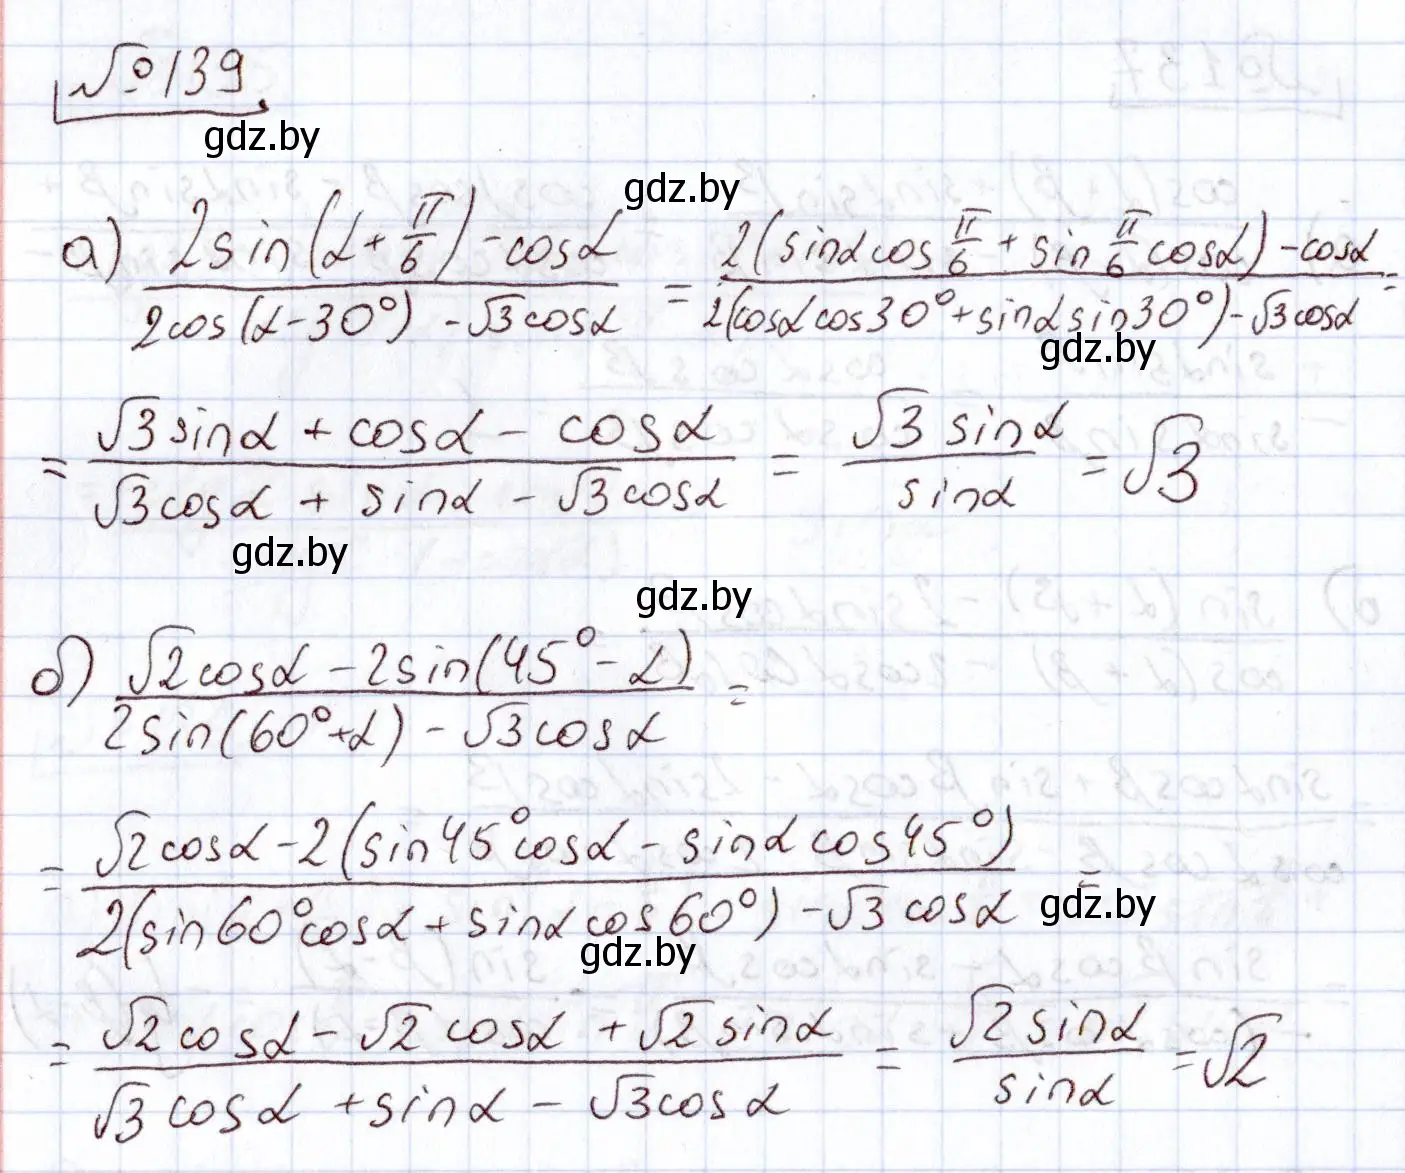 №139
gdz.by
gdz.by
а) (2sin(α + π/6) - cosα)/(2cos(α - 30°) - √3cosα) = (2(sinα cos π/6 + sin π/6 cosα) - cosα)/(2(cosα cos30° + sinα sin30°) - √3cosα) =
gdz.by
= (√3 sinα + cosα - cosα)/(√3cosα + sinα - √3cosα) = (√3 sinα)/(sinα) = √3
gdz.by
gdz.by
б) (√2cosα - 2sin(45° - α))/(2sin(60° + α) - √3cosα) =
= (√2cosα - 2(sin45°cosα - sinα cos45°))/(2(sin60°cosα + sinα cos60°) - √3cosα) =
gdz.by
gdz.by
= (√2cosα - √2cosα + √2sinα)/(√3cosα + sinα - √3cosα) = (√2sinα)/(sinα) = √2